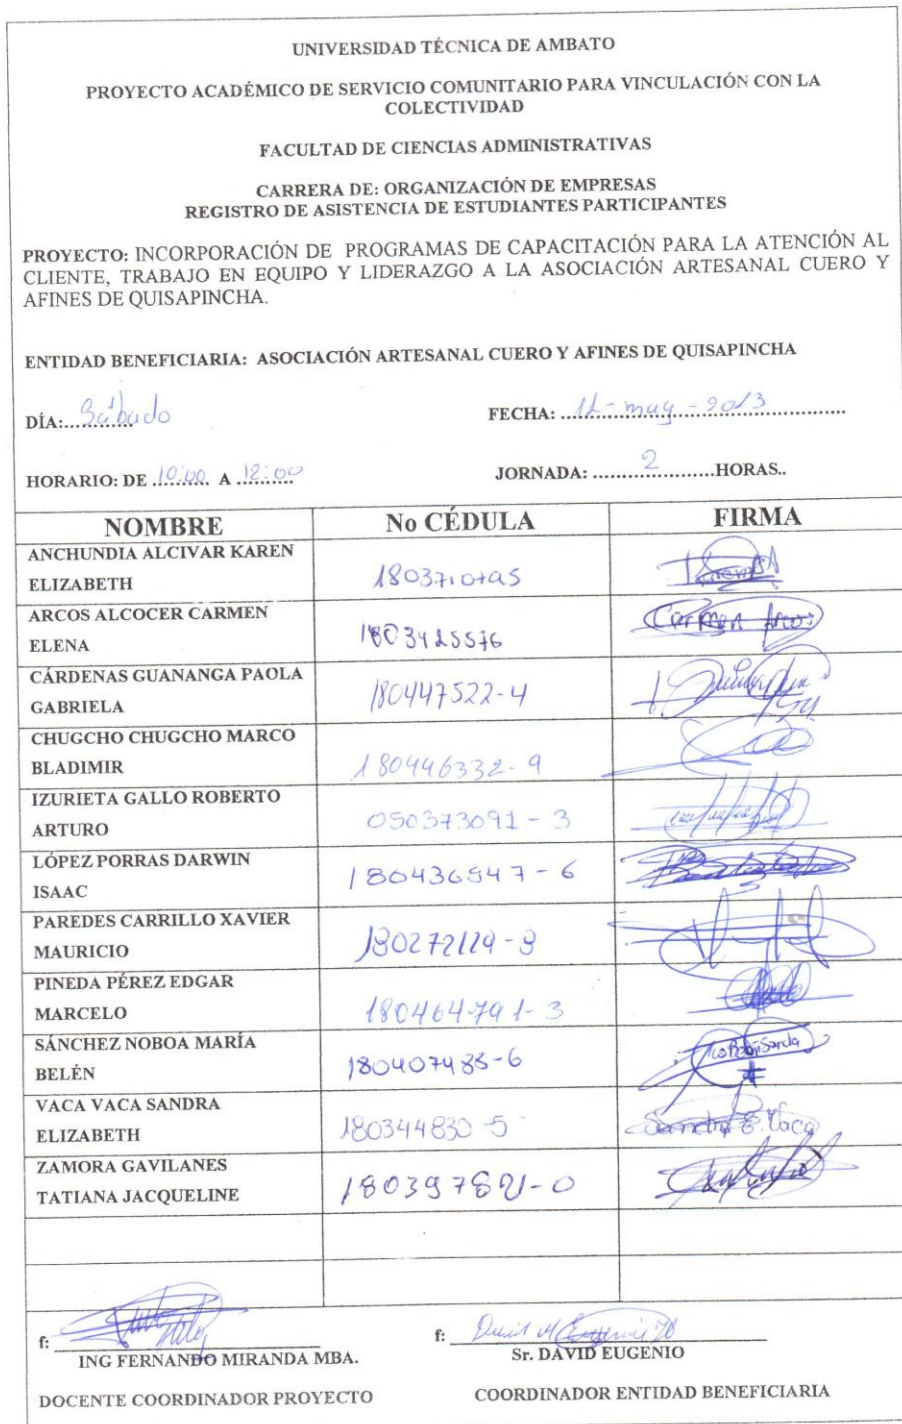 UNIVERSIDAD TÉCNICA DE AMBATO
PROYECTO ACADÉMICO DE SERVICIO COMUNITARIO PARA VINCULACIÓN CON LA
COLECTIVIDAD
FACULTAD DE CIENCIAS ADMINISTRATIVAS
CARRERA DE: ORGANIZACIÓN DE EMPRESAS
REGISTRO DE ASISTENCIA DE ESTUDIANTES PARTICIPANTES
PROYECTO: INCORPORACIÓN DE PROGRAMAS DE CAPACITACIÓN PARA LA ATENCIÓN AL
CLIENTE, TRABAJO EN EQUIPO Y LIDERAZGO A LA ASOCIACIÓN ARTESANAL CUERO Y
AFINES DE QUISAPINCHA.
ENTIDAD BENEFICIARIA: ASOCIACIÓN ARTESANAL CUERO Y AFINES DE QUISAPINCHA
DÍA: Sábado FECHA: may - 2013
HORARIO: DE 10:00 A 12:00 JORNADA: 2 HORAS..
NOMBRE No CÉDULA FIRMA
ANCHUNDIA ALCIVAR KAREN
ELIZABETH
ARCOS ALCOCER CARMEN
ELENA Carmen Arcos
CÁRDENAS GUANANGA PAOLA
GABRIELA 180447522-4
CHUGCHO CHUGCHO MARCO
BLADIMIR 180446332-9
IZURIETA GALLO ROBERTO
ARTURO 050373091-3
LÓPEZ PORRAS DARWIN
ISAAC 180436547-6
PAREDES CARRILLO XAVIER
MAURICIO
PINEDA PÉREZ EDGAR
MARCELO 180464791-3
SÁNCHEZ NOBOA MARÍA
BELÉN 180407485-6
VACA VACA SANDRA
ELIZABETH 180344830-5 Sandra E. Vaca
ZAMORA GAVILANES
TATIANA JACQUELINE
f: f:
ING FERNANDO MIRANDA MBA. Sr. DAVID EUGENIO
DOCENTE COORDINADOR PROYECTO COORDINADOR ENTIDAD BENEFICIARIA